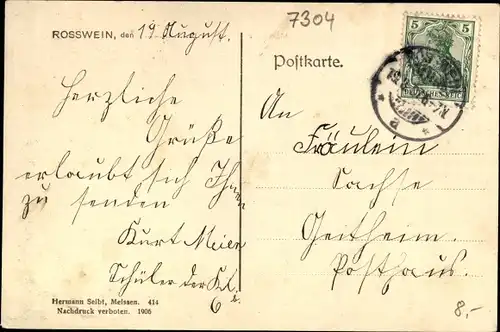 7304
ROSSWEIN, den 19 August.
Herzliche
Grüße
erlaubt sich Ihnen
zu senden
Kurt Meier
Schüler der Kl.
6 b.
Hermann Seibt, Meissen. 414
Nachdruck verboten. 1906
Postkarte.
5 5
An
Fräulein
Sachse
Geitheim.
Posthaus.
8,-